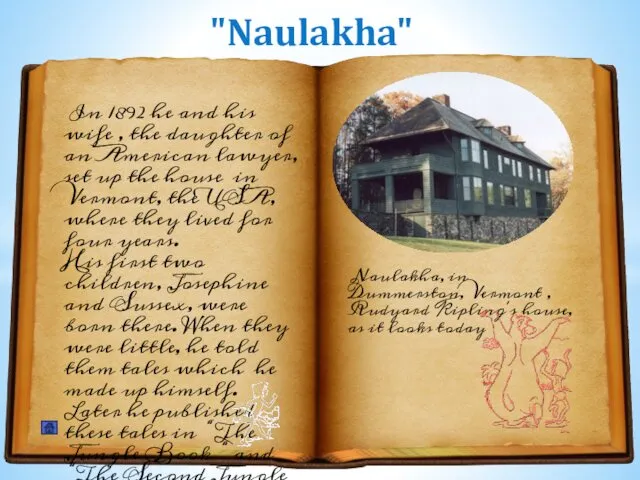 "Naulakha"
In 1892 he and his
wife, the daughter of
an American lawyer,
set up the house in
Vermont, the USA,
where they lived for
four years.
His first two
children, Josephine
and Sussex, were
born there. When they
were little, he told
them tales which he
made up himself.
Later he published
these tales in "The
Jungle Book" and
"The Second Jungle
Naulakha, in
Dummerston, Vermont,
Rudyard Kipling's house,
as it looks today